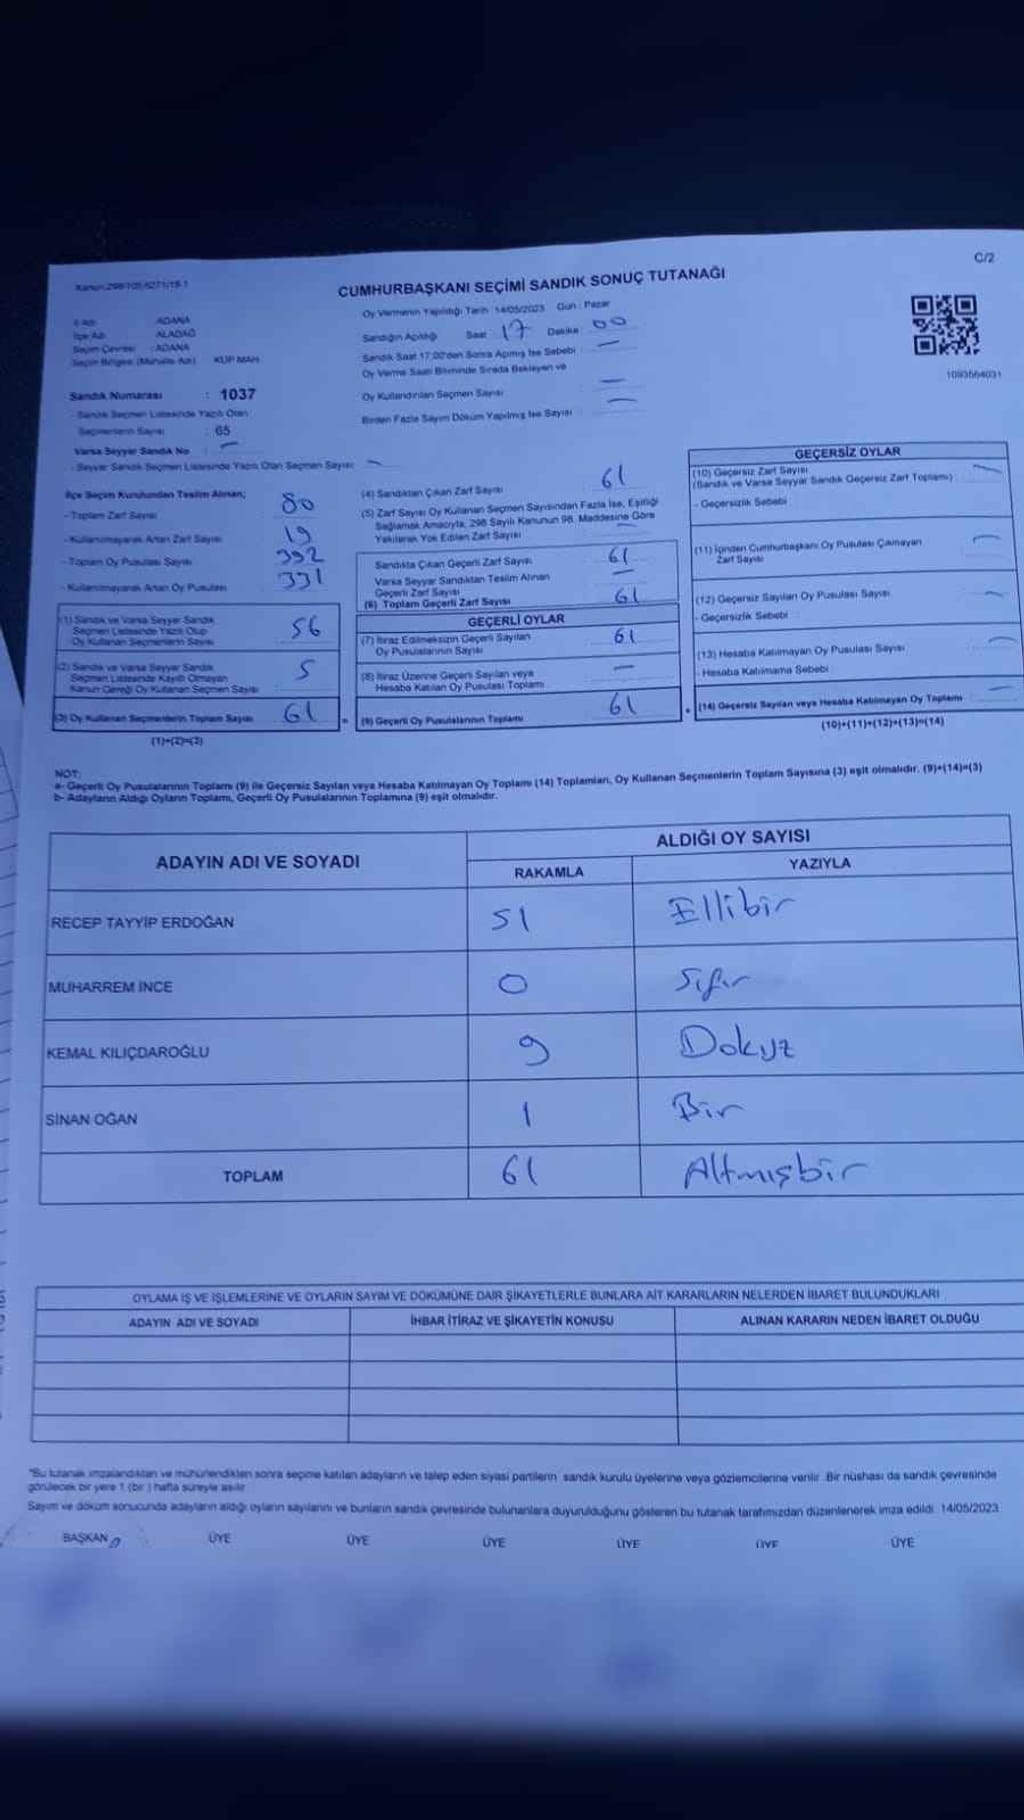 C/2
CUMHURBAŞKANI SEÇİMİ SANDIK SONUÇ TUTANAĞI
Oy Vermenin Yapıldığı Tarih : 14/05/2023 Gün : Pazar
Sandığın Açıldığı Saat : 17 Dakika : 00
Sandık Saat 17:00'den Sonra Açılmış İse Sebebi : —
Oy Verme Saati Bitiminde Sırada Bekleyen ve
Oy Kullandırılan Seçmen Sayısı —
Birden Fazla Sayım Döküm Yapılmış İse Sayısı —
1093564031
İl Adı : ADANA
İlçe Adı : ALADAĞ
Seçim Çevresi : ADANA
Seçim Bölgesi (Mahalle Adı) KÜP MAH
Sandık Numarası : 1037
- Sandık Seçmen Listesinde Yazılı Olan
Seçmenlerin Sayısı : 65
Varsa Seyyar Sandık No : —
- Seyyar Sandık Seçmen Listesinde Yazılı Olan Seçmen Sayısı —
İlçe Seçim Kurulundan Teslim Alınan;
- Toplam Zarf Sayısı 80
- Kullanılmayarak Artan Zarf Sayısı 19
- Toplam Oy Pusulası Sayısı 392
- Kullanılmayarak Artan Oy Pusulası 331
(1) Sandık ve Varsa Seyyar Sandık
Seçmen Listesinde Yazılı Olup
Oy Kullanan Seçmenlerin Sayısı 56
(2) Sandık ve Varsa Seyyar Sandık
Seçmen Listesinde Kayıtlı Olmayan
Kanun Gereği Oy Kullanan Seçmen Sayısı 5
(3) Oy Kullanan Seçmenlerin Toplam Sayısı 61
(1)+(2)=(3)
(4) Sandıktan Çıkan Zarf Sayısı 61
(5) Zarf Sayısı Oy Kullanan Seçmen Sayısından Fazla İse, Eşitliği
Sağlamak Amacıyla, 298 Sayılı Kanunun 98. Maddesine Göre
Yakılarak Yok Edilen Zarf Sayısı —
Sandıkta Çıkan Geçerli Zarf Sayısı 61
Varsa Seyyar Sandıktan Teslim Alınan
Geçerli Zarf Sayısı —
(6) Toplam Geçerli Zarf Sayısı 61
GEÇERLİ OYLAR
(7) İtiraz Edilmeksizin Geçerli Sayılan
Oy Pusulalarının Sayısı 61
(8) İtiraz Üzerine Geçerli Sayılan veya
Hesaba Katılan Oy Pusulası Toplamı —
= (9) Geçerli Oy Pusulalarının Toplamı 61
GEÇERSİZ OYLAR
(10) Geçersiz Zarf Sayısı
(Sandık ve Varsa Seyyar Sandık Geçersiz Zarf Toplamı) —
- Geçersizlik Sebebi
(11) İçinden Cumhurbaşkanı Oy Pusulası Çıkmayan
Zarf Sayısı —
(12) Geçersiz Sayılan Oy Pusulası Sayısı —
- Geçersizlik Sebebi
(13) Hesaba Katılmayan Oy Pusulası Sayısı —
- Hesaba Katılmama Sebebi
+ (14) Geçersiz Sayılan veya Hesaba Katılmayan Oy Toplamı —
(10)+(11)+(12)+(13)=(14)
NOT:
a- Geçerli Oy Pusulalarının Toplamı (9) ile Geçersiz Sayılan veya Hesaba Katılmayan Oy Toplamı (14) Toplamları, Oy Kullanan Seçmenlerin Toplam Sayısına (3) eşit olmalıdır. (9)+(14)=(3)
b- Adayların Aldığı Oyların Toplamı, Geçerli Oy Pusulalarının Toplamına (9) eşit olmalıdır.
ADAYIN ADI VE SOYADI ALDIĞI OY SAYISI
RAKAMLA YAZIYLA
RECEP TAYYİP ERDOĞAN 51 Ellibir
MUHARREM İNCE 0 Sıfır
KEMAL KILIÇDAROĞLU 9 Dokuz
SİNAN OĞAN 1 Bir
TOPLAM 61 Altmışbir
OYLAMA İŞ VE İŞLEMLERİNE VE OYLARIN SAYIM VE DÖKÜMÜNE DAİR ŞİKAYETLERLE BUNLARA AİT KARARLARIN NELERDEN İBARET BULUNDUKLARI
ADAYIN ADI VE SOYADI İHBAR İTİRAZ VE ŞİKAYETİN KONUSU ALINAN KARARIN NEDEN İBARET OLDUĞU
"Bu tutanak imzalandıktan ve mühürlendikten sonra seçime katılan adayların ve talep eden siyasi partilerin sandık kurulu üyelerine veya gözlemcilerine verilir. Bir nüshası da sandık çevresinde
görülecek bir yere 1 (bir) hafta süreyle asılır.
Sayım ve döküm sonucunda adayların aldığı oyların sayılarını ve bunların sandık çevresinde bulunanlara duyurulduğunu gösteren bu tutanak tarafımızdan düzenlenerek imza edildi. 14/05/2023
BAŞKAN ÜYE ÜYE ÜYE ÜYE ÜYE ÜYE